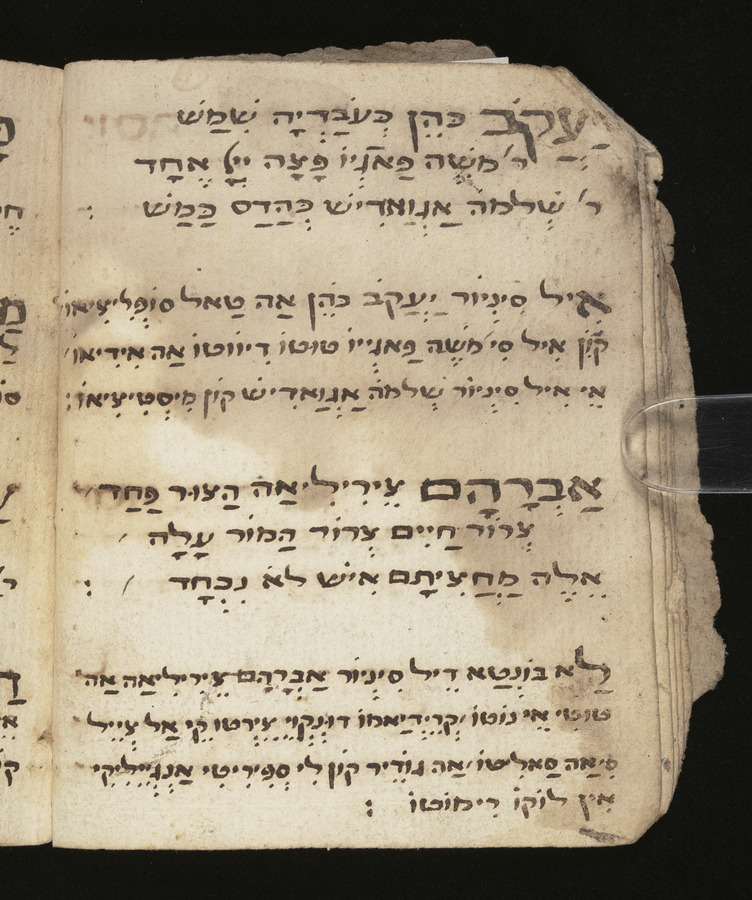 יַעֲקֹב כֹּהֵן כְּעֹבַדְיָה שִׁמַּשׁ
ר' מֹשֶׁה פַאנְיוֹ פָּצָה יִץְ אֶחָד
ר' שְׁלֹמֹה אַנְוַאדִישׁ כְּהַדַס כַּמַשׁ :
אִיל סִינְיוֹר יַעֲקֹב כֹּהֵן אַה טַאל סוֹפְּלִיצִיאוֹ
קוֹן אִיל סִי' מֹשֶׁה פַאנְייוֹ טוּטוֹ דִיווֹטוֹ אַה אִידִיאוֹ
אֵי אִיל סִינְיוֹר שְׁלֹמֹה אַנְוַאדִישׁ קוֹן מִיסְטִיצִיאוֹ :
אַבְרָהָם צִירִילִיאַה הַצוּר פַּחַד
צְרוֹר חַיִּים צְרוֹר הַמּוֹר עָלָה
אֵלֶּה מַחֲצִיתָם אִישׁ לֹא נִכְחָד :
לַא בּוֹנְטַא דֵיל סִינְיוֹר אַבְרָהָם צִירִילִיאַה אַה
טוּטִי אֵי נוֹטוֹ קְרֵידִיאַמוֹ דוּנְקְוֵי צֵירְטוֹ קֵי אַל צְיֵיל
סִיאַה סַאלִיטוֹ אַה גוֹדֵיר קוֹן לִי סְפִּירִיטִי אַנְגֵיילִיקִי
אִין לוֹקוֹ רִימוֹטוֹ :